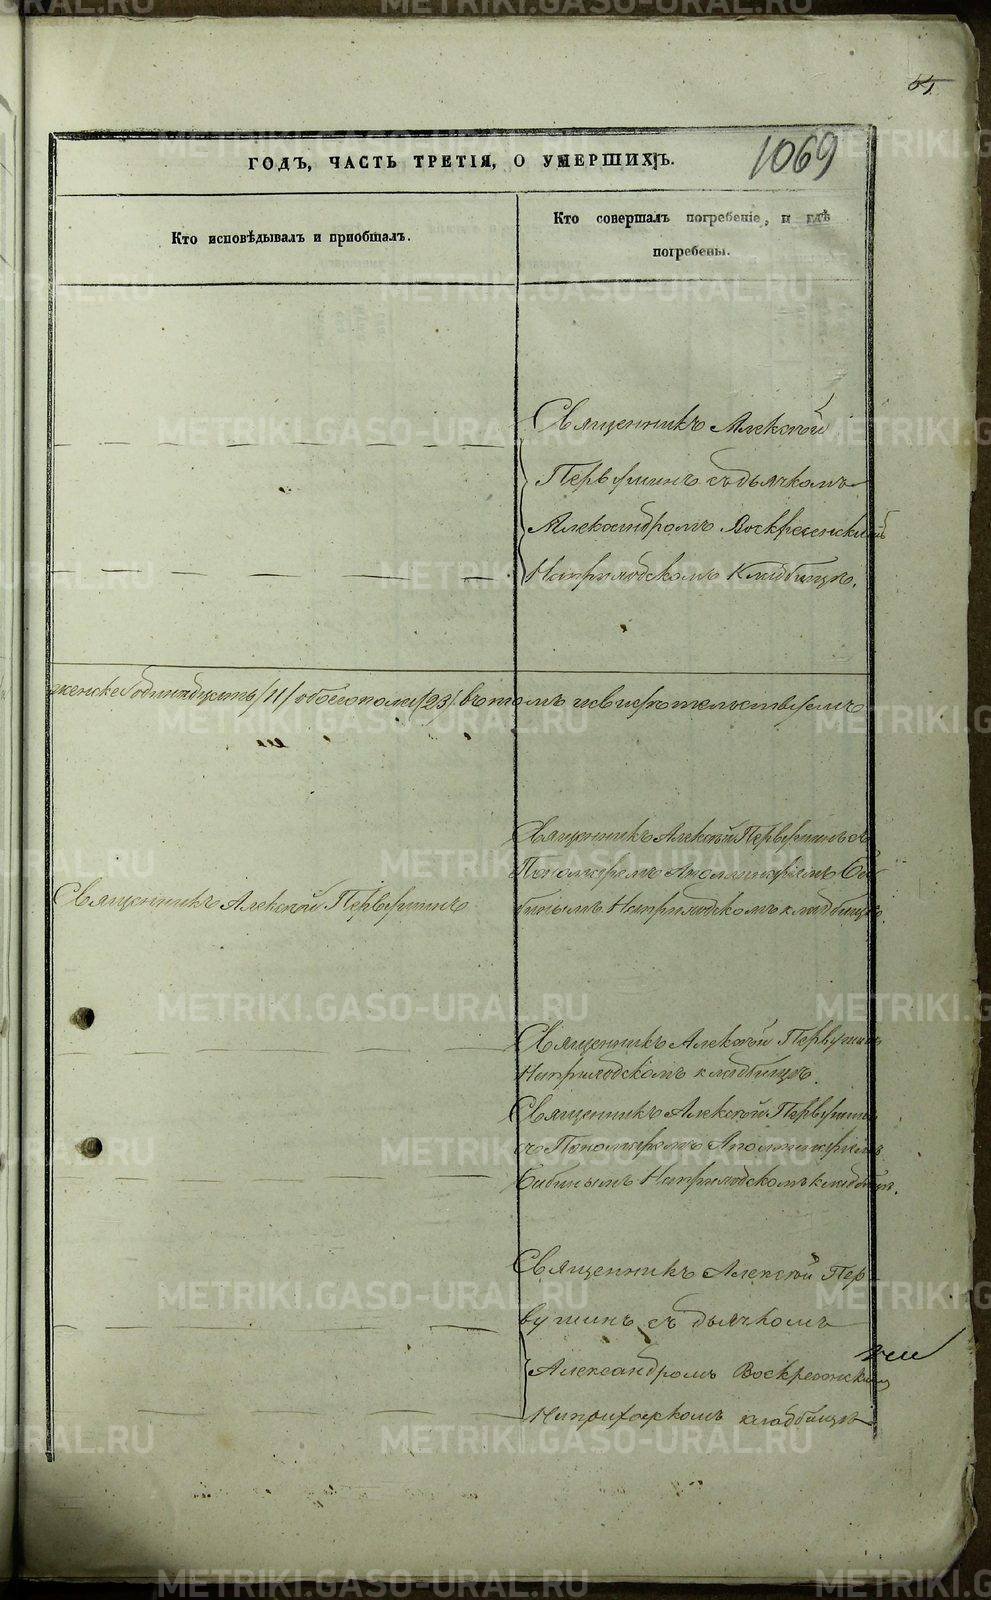 METRIKI.GASO-URAL.RU
1069
ГОДЪ, ЧАСТЬ ТРЕТІЯ, О УМЕРШИХЪ.
Кто исповѣдывалъ и пріобщалъ.
Кто совершалъ погребеніе, и гдѣ
погребены.
Священникъ Алексѣй
Первушинъ съ дьячкомъ
Александромъ Воскресенскимъ
На приходскомъ кладбищѣ.
женска одинадцать /11/ обоего пола /23/ въ томъ и свидѣтельствуемъ
Священникъ Алексѣй Первушинъ съ
Пономаремъ Аполинаріемъ Ба
бинымъ На приходскомъ кладбищѣ.
Священникъ Алексѣй Первушинъ
Священникъ Алексѣй Первушинъ
На приходскомъ кладбищѣ.
Священникъ Алексѣй Первушинъ
съ Пономаремъ Аполинаріемъ
Бабинымъ На приходскомъ кладбищѣ.
Священникъ Алексѣй Пер
вушинъ съ дьячкомъ
Александромъ Воскресенским
На приходскомъ кладбищѣ